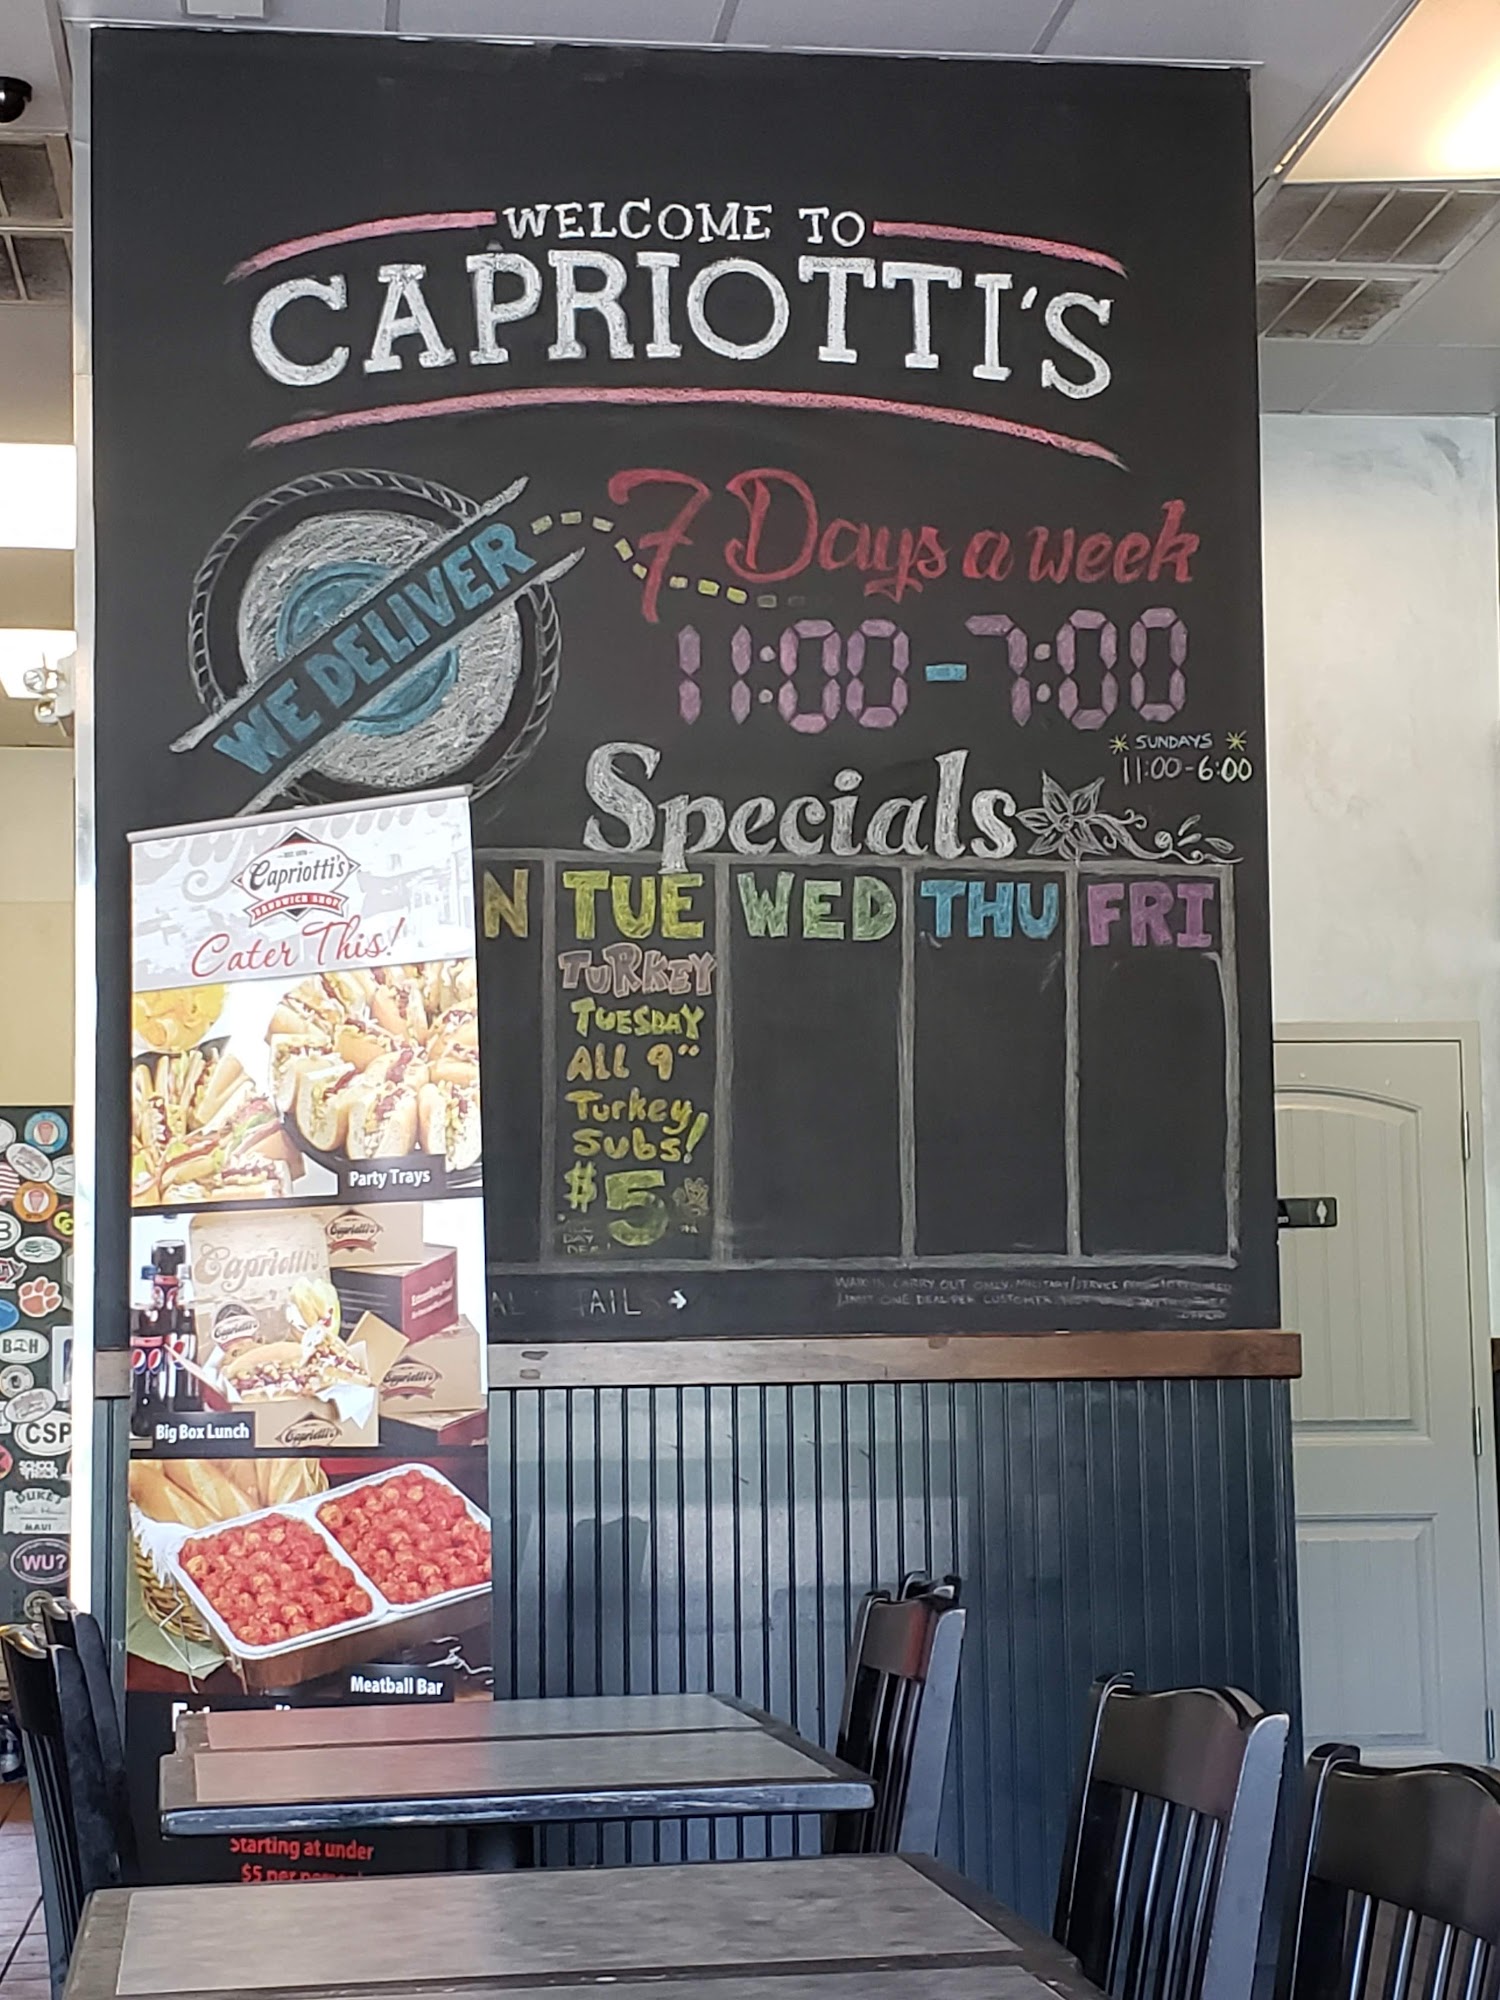 WELCOME TO
CAPRIOTTI'S
WE DELIVER
7 Days a week
11:00-7:00
SUNDAYS
11:00-6:00
Specials
N TUE WED THU FRI
TURKEY
TUESDAY
ALL 9"
Turkey
SUBS!
$5
DAY
AILS
WALK IN, CARRY OUT ONLY. MILITARY/SERVICE
LIMIT ONE DEAL PER CUSTOMER
EST. 1976
Capriotti's
SANDWICH SHOP
Cater This!
Party Trays
Capriotti's
Capriotti's
Capriotti's
Capriotti's
Capriotti's
Big Box Lunch
Meatball Bar
Starting at under
$5 per person
B H
CSP
SCHOOL
DUKE'S
MAUI
WU?